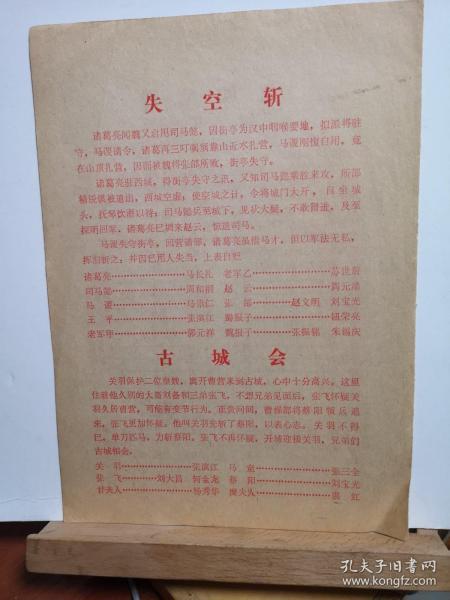 失空斩
诸葛亮闻魏又启用司马懿,因街亭为汉中咽喉要地,拟派将驻
守,马谡请令,诸葛再三叮嘱须靠山近水扎营,马谡刚愎自用,竟
在山顶扎营,因而被魏将张郃所败,街亭失守。
诸葛亮驻西城,得街亭失守之讯,又知司马懿乘胜来攻,所部
精锐俱被遣出,西城空虚,使空城之计,令将城门大开,自坐城
头,抚琴饮酒以待;司马懿兵至城下,见状大疑,不敢冒进,及至
探明回军,诸葛亮已调来赵云,惊退司马。
马谡失守街亭,回营请罪,诸葛亮虽惜马才,但以军法无私,
挥泪斩之;并因己用人失当,上表自贬
诸葛亮…………马长礼 老军乙…………苏世蔚
司马懿…………周和桐 赵 云…………阎元靖
马 谡…………马崇仁 张 郃…………赵文明 刘宝光
王 平…………张滨江 蜀报子…………钮荣亮
老军甲…………郭元祥 魏报子…………张振铭 朱锡庆
古城会
关羽保护二位皇嫂,离开曹营来到古城,心中十分高兴。这里
住着他久别的大哥刘备和三弟张飞,不想兄弟见面后,张飞怀疑关
羽久居曹营,可能有变节行为。正责问间,曹操部将蔡阳领兵追
来,张飞更加怀疑。他叫关羽先斩了蔡阳,以表心志。关羽不得
已,单刀匹马,力斩蔡阳,张飞不再怀疑,开城迎接关羽,兄弟们
古城相会。
关 羽…………张滨江 马 童…………张三全
张 飞…………刘大昌 何金龙 蔡 阳…………刘宝光
甘夫人…………杨秀华 糜夫人…………裘红
孔夫子旧书网
www.kongfz.com